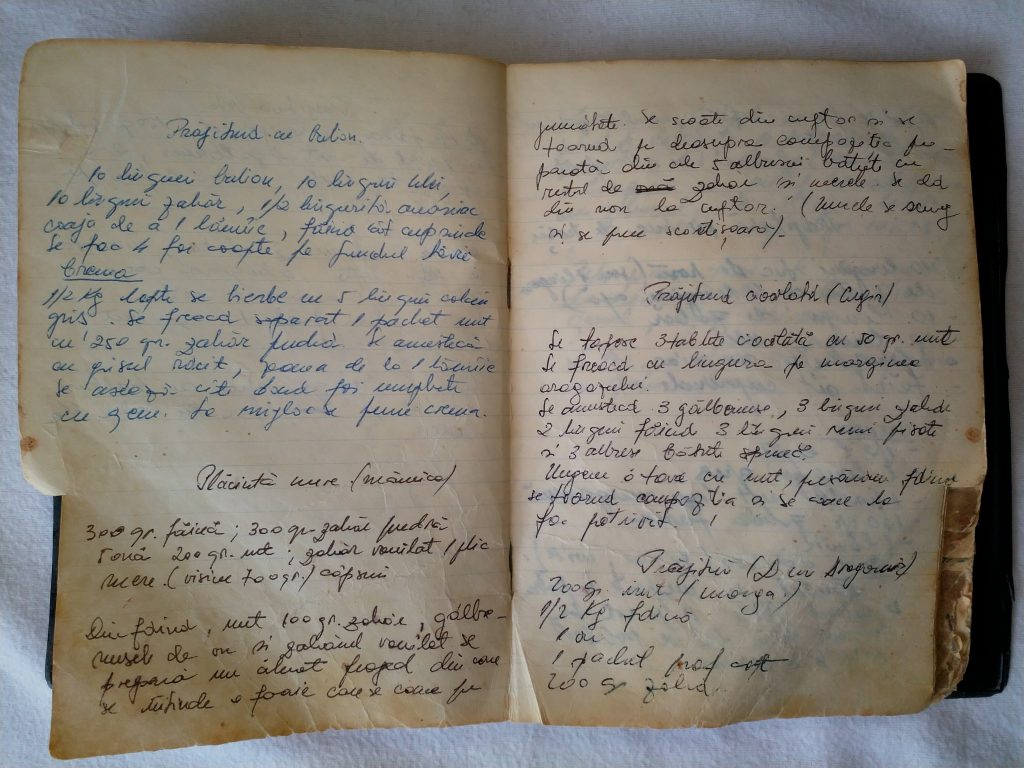 Prăjitură cu bulion.
10 linguri bulion, 10 linguri ulei,
10 linguri zahăr, 1/2 linguriță amoniac
coaja de a 1 lămîie, făină cît cuprinde
Se fac 4 foi coapte pe fundul tăvii
Crema
1/2 Kg lapte se fierbe cu 5 linguri
gris. Se freacă separat 1 pachet unt
cu 250 gr. zahăr pudră. Se amestecă
cu grisul răcit, zeama de la 1 lămîie
Se așează cîte două foi umplute
cu gem. La mijloc se pune crema.
Plăcintă mere (mămica)
300 gr. făină; 300 gr. zahăr pudră
200 gr. unt; zahăr vanilat 1 plic
mere (visine 700 gr.)
Din făină, unt 100 gr. zahăr, gălbe-
nusele de ou si zahărul vanilat se
prepară un aluat fraged din care
se întinde o foaie care se coace pe
jumătate. Se scoate din cuptor si se
toarnă pe deasupra compozitia pre-
parată din cele 5 albusuri bătute cu
restul de zahăr si merele. Se dă
din nou la cuptor. (Merele se scurg
si se pune scortisoară).
Prăjitură ciocolată (Cugir)
Se topesc 3 tablete ciocolată cu 50 gr. unt
Se freacă cu lingura pe marginea
aragazului.
Se amestecă 3 gălbenuse, 3 linguri zahăr
2 linguri făină 3 linguri nuci pisate
si 3 albuse bătute spumă.
Ungem o tavă cu unt, presărăm făină
se toarnă compozitia si se coace la
foc potrivit!
Prăjitură (D-na Dragomir)
200 gr. unt (marga.)
1/2 Kg făină
1 ou
1 pachet praf copt
200 gr zahăr.